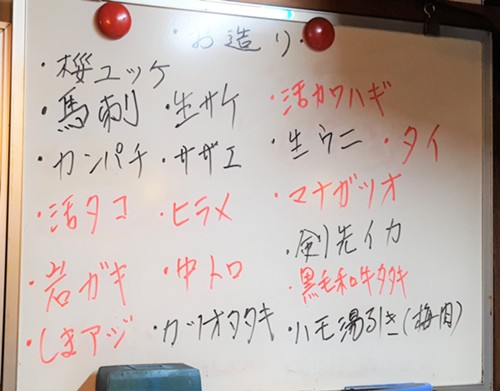 ・お造り・
・桜ユッケ
・馬刺 ・生サケ ・活カワハギ
・カンパチ ・サザエ ・生ウニ ・タイ
・活タコ ・ヒラメ ・マナガツオ
・剣先イカ
・岩ガキ ・中トロ ・黒毛和牛タタキ
・しまアジ ・カツオタタキ ・ハモ湯引き(梅肉)